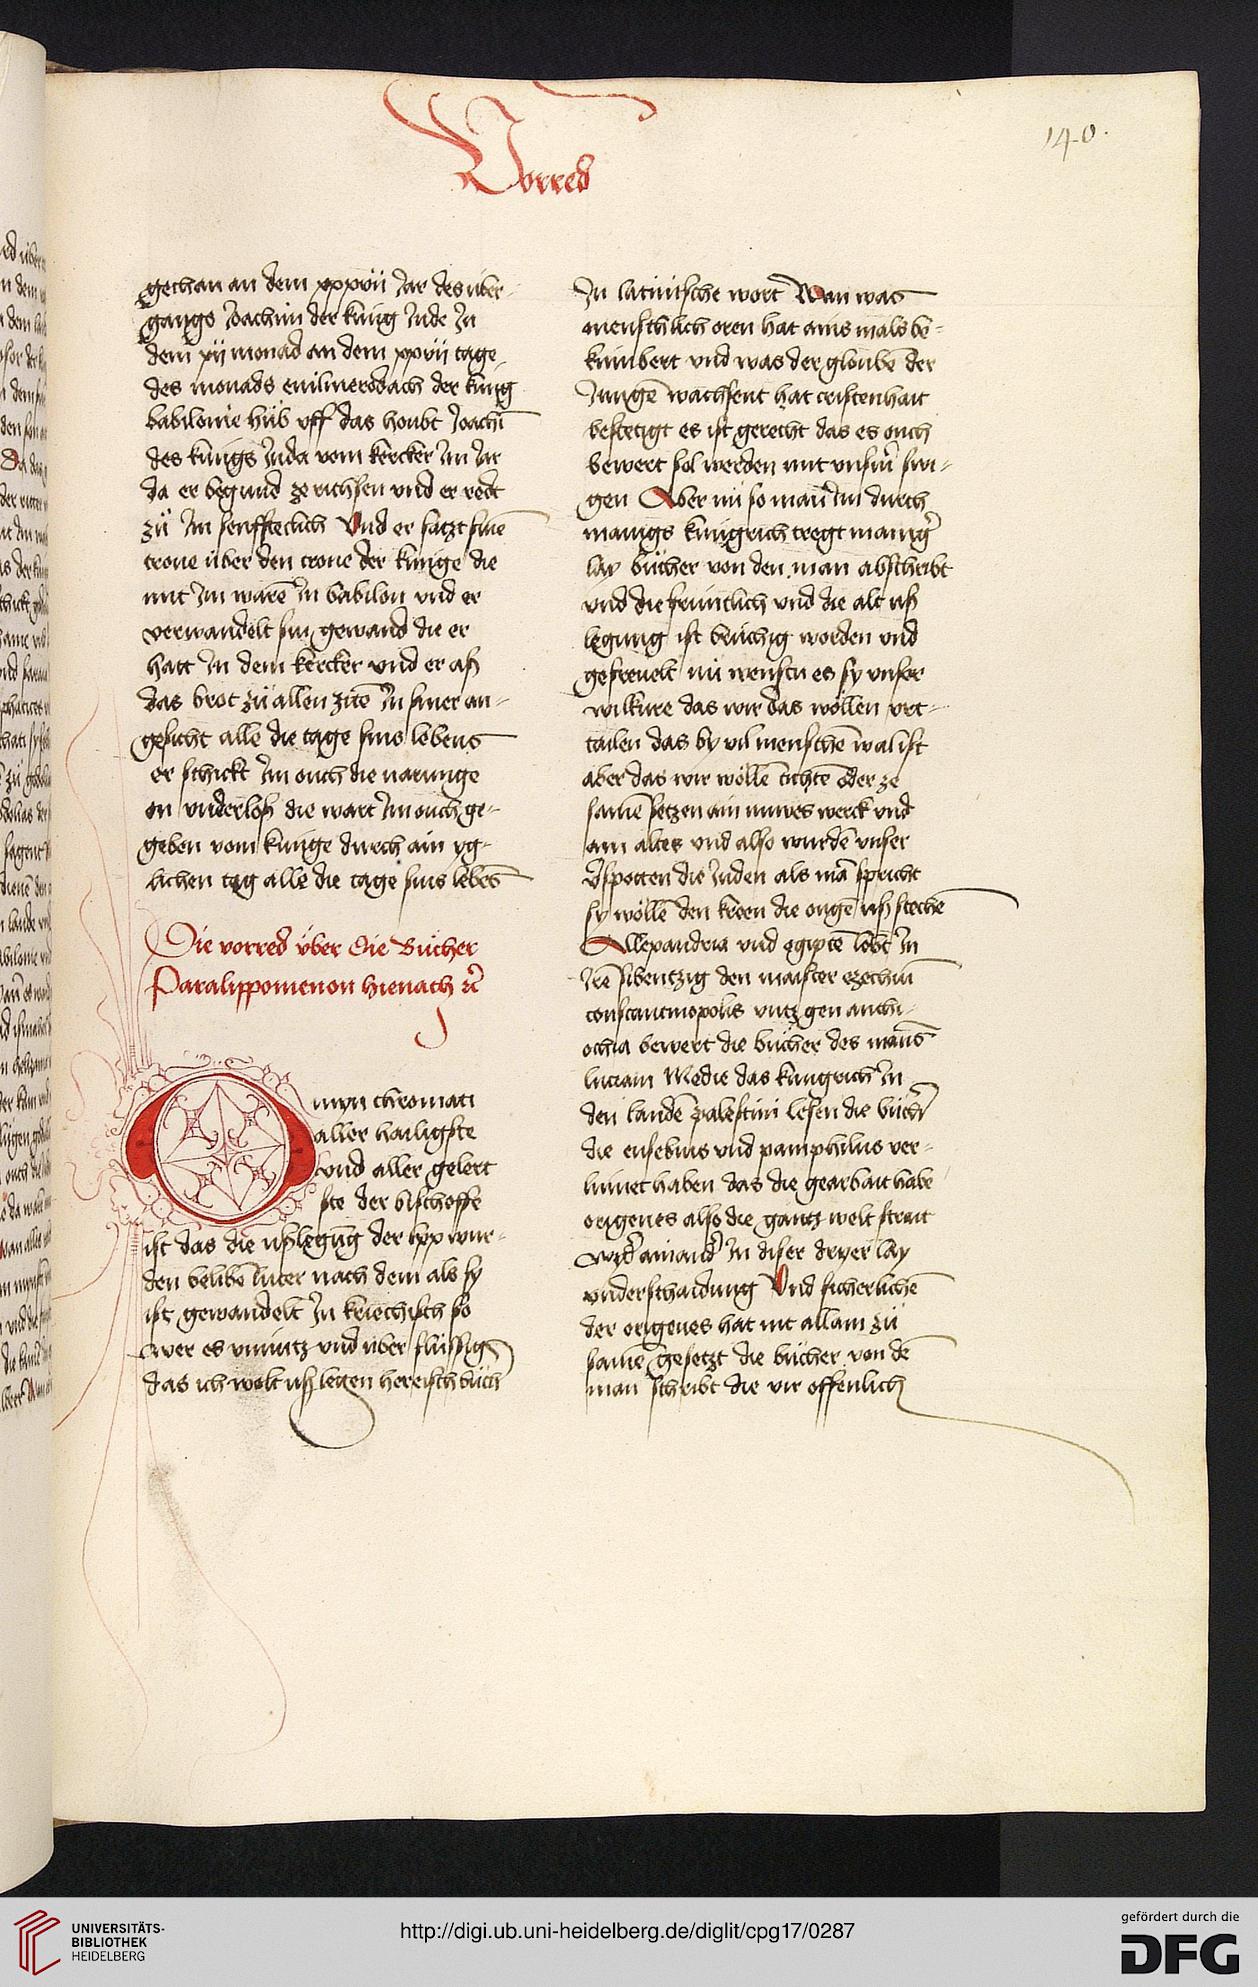 Vorred
140.
gechan an dem xxxvii Jar des über-
gangs Joachim der küng Jude Jn
dem xij monad an dem xxvij tage
des monads evilmerodach der küng
babilonie hüb vff das houbt Joachī
des küngs Juda vom kercker Jm Jar
da er begund ze richsen vnd er redt
zü Jm senffteclich Vnd er satzt sinē
trone über den trone der künige die
mit Jm warē Jn babilon vnd er
verwandelt sin gewand die er
hatt Jn dem kercker vnd er aß
das brot zü allen zitē Jn siner an-
gesicht alle die tage sins lebens
er schickt Jm ouch die narunge
on vnderloß die wart Jm ouch ge-
geben vom künige durch ain yg-
lichen tag alle die tage sins lebēs
Die vorred über Die Bücher
Paralippomenon hienach ꝛc̄
O myn chromati
aller hailigste
vnd aller gelert
ste der bischoffe
ist das die vßlegūg der lxx wur-
den belibē luter nach dem als sy
ist gewandelt Jn kriechisch so
wer es vnnütz vnd über flüssig
das ich wölt vß legen hereisch büch
Jn latinische wort Wan was
menschlich oren hat ains mals be-
kümbert vnd was der gloubē der
Jungē wachsent hat cristenhait
bestetigt es ist gerecht das es ouch
bewert sol werden mit vnsm̄ swi-
gen Aber nü so man Jm durch
manigs küngrich tregt manig͛
lay bücher von den man abschribt
vnd die früntlich vnd die alt vß
legung ist brüchig worden vnd
gefreuelt nü wenstu es sy vnser
wilküre das wir das wöllen vrt-
tailen das by vil menschē wal ist
aber das wir wöllē tichtē oder ze
samē setzen ain nuwes werck vnd
ain altes vnd also wurdē vnser
v͛spotten die Juden als mā spricht
sy wöllē den kreen die ougē vß stechē
Allexandria vnd egiptē lobt Jn
Jrē sibentzig den maister ezechiū
constantinopolis vntz gen anthi-
ochia bewert die bücher des man̄s
luciani Medie das küngrich Jn
den landē palestini lesen die büch͛
die eusebius vnd pamphilus ver-
lumet haben das die gearbait habē
origenes also die gantz welt strait
wyd͛ ainand͛ Jn diser dryer lay
vnderschaidung Vnd sicherlichē
der origenes hat nit allain zü
samē gesetzt die bücher von dē
man schribt die vir offenlich
UNIVERSITÄTS-
BIBLIOTHEK
HEIDELBERG
http://digi.ub.uni-heidelberg.de/diglit/cpg17/0287
gefördert durch die
DFG